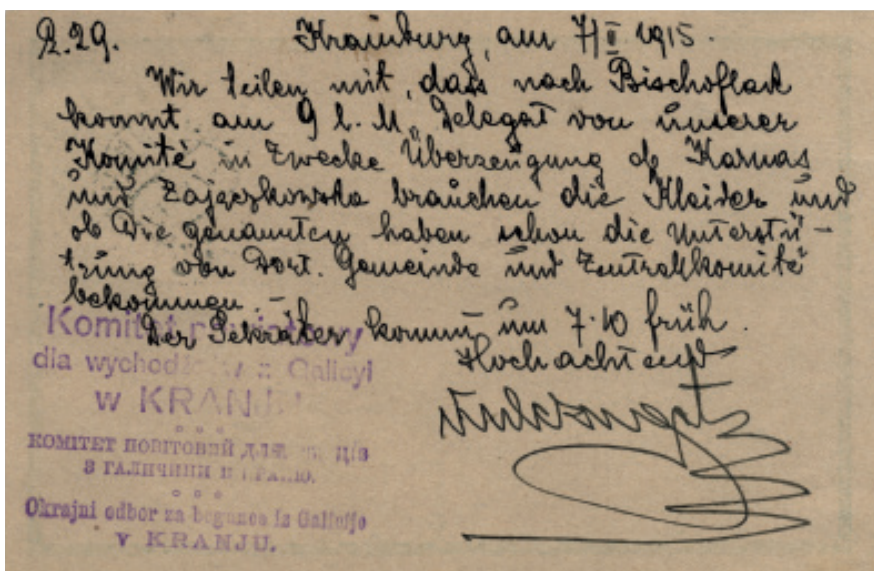 R. 29. Krainburg, am 7/II 1915.
Wir teilen mit, dass nach Bischoflack
kommt am 9 l. M. Delegat von unserer
Komité in Zwecke Überzeugung ob Karnas
und Zajączkowska brauchen die Kleider und
ob die genannten haben schon die Unterstü-
tzung von dort. Gemeinde und Zentralkomité
bekommen.-
Der Sekretär kommt um 7.10 früh.
Hochachtend
Komitet powiatowy
dla wychodźców z Galicyi
W KRANJU
КОМІТЕТ ПОВІТОВИЙ ДЛЯ
З ГАЛИЧИНИ В
Okrajni odbor za begunce iz Galicije
V KRANJU.